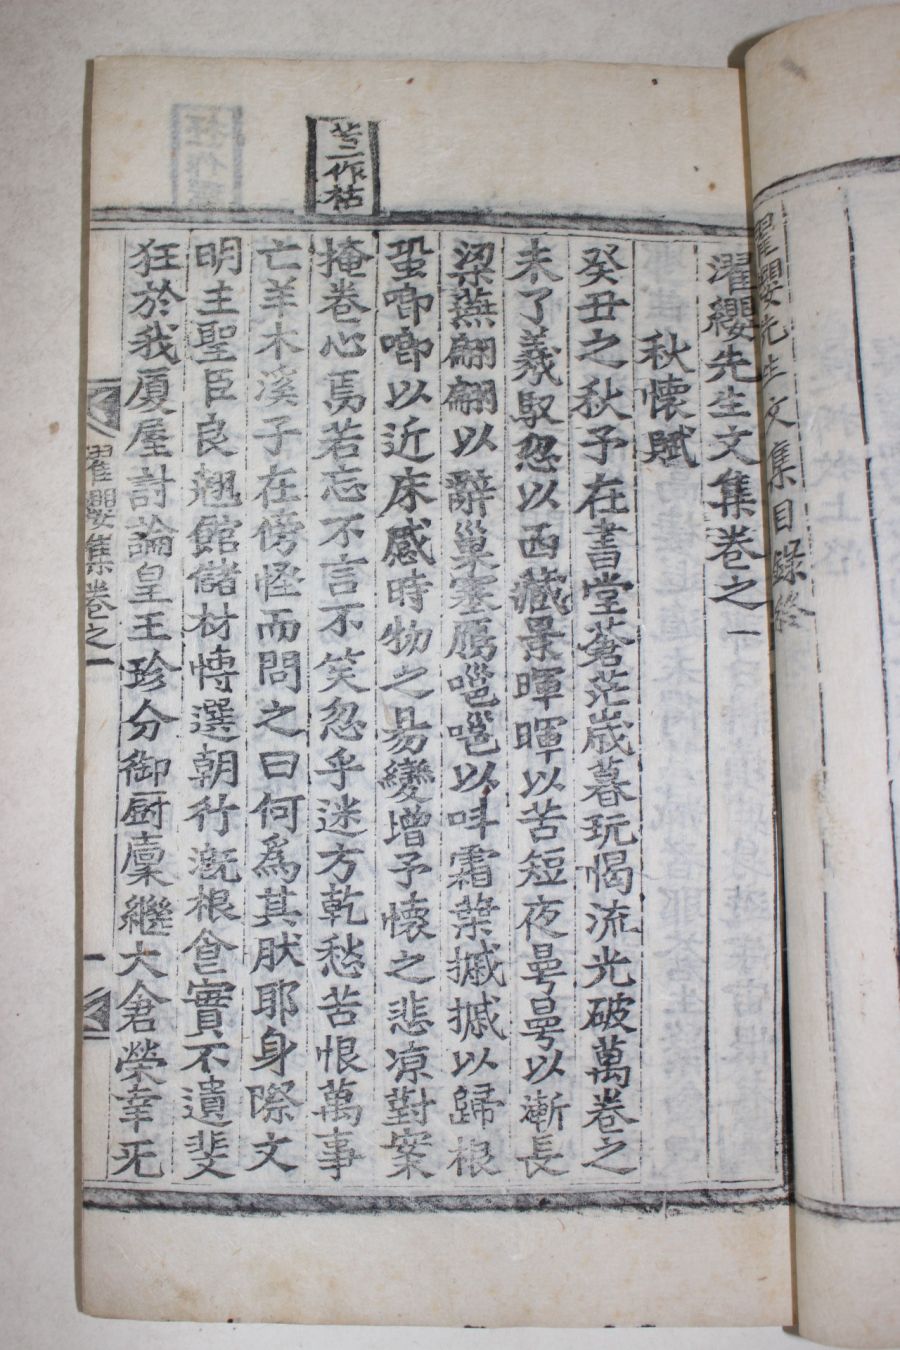 濯纓先生文集目錄終
濯纓先生文集卷之一
秋懷賦
癸丑之秋予在書堂蒼茫歲暮玩愒流光破萬卷之
未了羲馭忽以西藏景暉暉以苦短夜曼曼以漸長
梁燕翩翩以辭巢塞鴈嗈嗈以叫霜葉摵摵以歸根
蛩喞喞以近床感時物之易變增予懷之悲凉對案
掩卷心焉若忘不言不笑忽乎迷方乾愁苦恨萬事
亡羊木溪子在傍怪而問之曰何爲其肰耶身際文
明主聖臣良翹館儲材慱選朝行漑根食實不遺斐
狂於我厦屋討論皇王珍分御厨廩繼大倉榮幸旡
苦一作枯
濯纓集卷之一
一